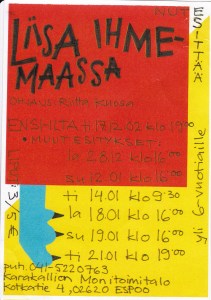 NUT
ESITTÄÄ
LIISA IHME-
MAASSA
OHJAUS: Riitta
ENSI-ILTA ti 17.12.02 klo 19.00
MUUT ESITYKSET:
la 28.12 klo 16.00
su 29.12 klo 16.00
ti 14.01 klo 9.30
la 18.01 klo 16.00
su 19.01 klo 16.00
ti 21.01 klo 19.00
Yli 6-vuotiaille
3,5 €
puh. 041-5220763
Karakallion Monitoimitalo
Kotkatie 4, 02620 ESPOO